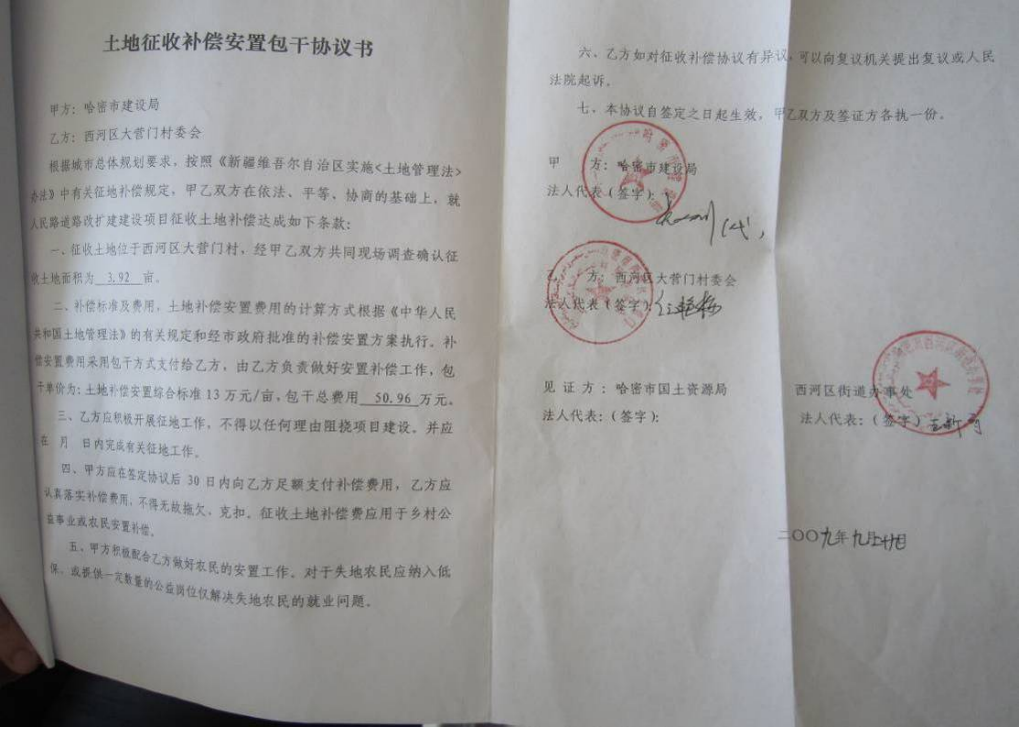 土地征收补偿安置包干协议书
甲方：哈密市建设局
乙方：西河区大营门村委会
根据城市总体规划要求，按照《新疆维吾尔自治区实施<土地管理法>
办法》中有关征地补偿规定，甲乙双方在依法、平等、协商的基础上，就
人民路道路改扩建建设项目征收土地补偿达成如下条款：
一、征收土地位于西河区大营门村，经甲乙双方共同现场调查确认征
收土地面积为 3.92 亩。
二、补偿标准及费用，土地补偿安置费用的计算方式根据《中华人民
共和国土地管理法》的有关规定和经市政府批准的补偿安置方案执行。补
偿安置费用采用包干方式支付给乙方，由乙方负责做好安置补偿工作，包
干单价为：土地补偿安置综合标准 13 万元/亩，包干总费用 50.96 万元。
三、乙方应积极开展征地工作，不得以任何理由阻挠项目建设。并应
在 月 日内完成有关征地工作。
四、甲方应在签定协议后 30 日内向乙方足额支付补偿费用，乙方应
认真落实补偿费用，不得无故拖欠、克扣。征收土地补偿费应用于乡村公
益事业或农民安置补偿。
五、甲方积极配合乙方做好农民的安置工作。对于失地农民应纳入低
保，或提供一定数量的公益岗位仅解决失地农民的就业问题。
六、乙方如对征收补偿协议有异议，可以向复议机关提出复议或人民
法院起诉。
七、本协议自签定之日起生效，甲乙双方及签证方各执一份。
甲 方：哈密市建设局
法人代表（签字）：
乙 方：西河区大营门村委会
法人代表（签字）：
见证方：哈密市国土资源局
法人代表：（签字）：
西河区街道办事处
法人代表：（签字）
二〇〇九年九月